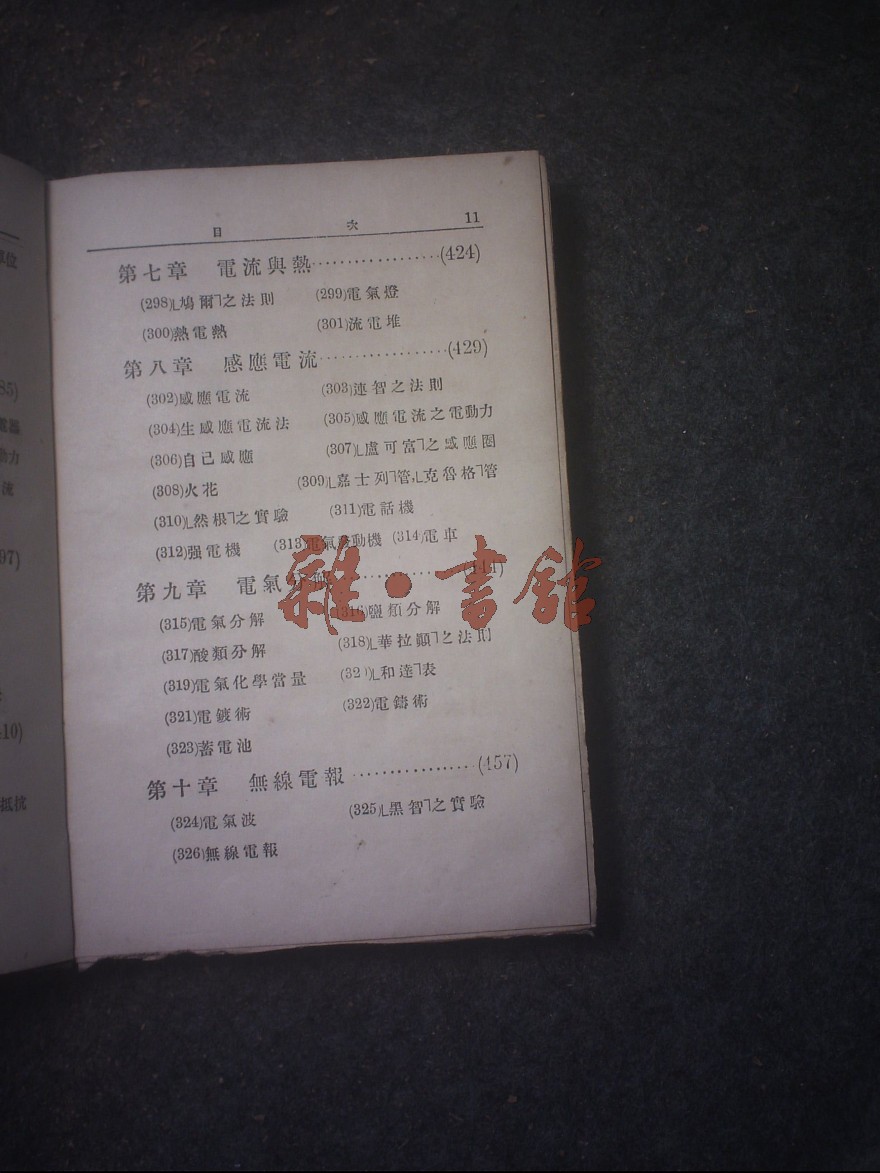 目 次 11
第七章 電流與熱··················(424)
(298)⎿鳩爾⏋之法則 (299)電氣燈
(300)熱電熱 (301)流電堆
第八章 感應電流··················(429)
(302)感應電流 (303)連智之法則
(304)生感應電流法 (305)感應電流之電動力
(306)自己感應 (307)⎿盧可富⏋之感應圈
(308)火花 (309)⎿嘉士列⏋管,⎿克魯格⏋管
(310)⎿然根⏋之實驗 (311)電話機
(312)强電機 (313)電氣發動機 (314)電車
第九章 電氣分解
(315)電氣分解 (316)鹽類分解
(317)酸類分解 (318)⎿華拉顚⏋之法則
(319)電氣化學當量 (320)⎿和達⏋表
(321)電鍍術 (322)電鑄術
(323)蓄電池
第十章 無線電報··················(457)
(324)電氣波 (325)⎿黑智⏋之實驗
(326)無線電報
雜·書館
單位
85)
動力
流
97)
410)
抵抗